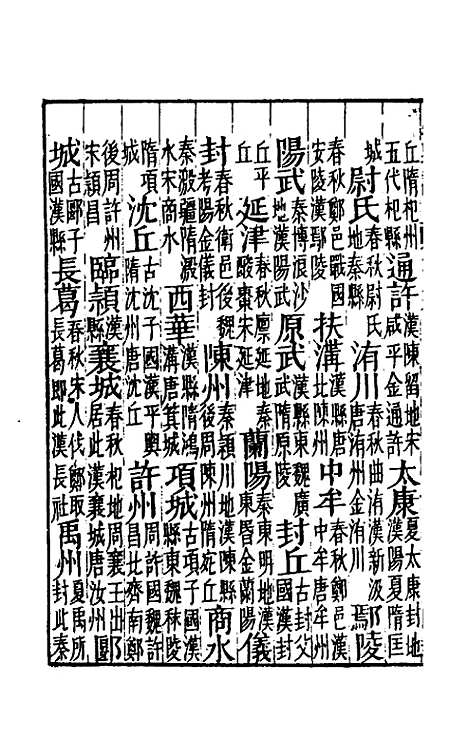 丘隋杞州五代杞縣通許漢陳留地宋咸平金通許太康夏太康封地漢陽夏隋匡
城尉氏春秋尉氏地秦縣洧川春秋曲洧漢新汲唐洧州金洧川鄢陵
春秋鄭邑戰國安陵漢鄢陵扶溝漢縣唐北陳州中牟春秋鄭邑漢中牟唐牟州
陽武秦博浪沙地漢陽武原武漢縣東魏廣武隋原陵封丘古封父國漢封
丘平丘延津春秋廩延地秦酸棗宋延津蘭陽秦東明地漢東昏金蘭陽儀
封春秋衛邑後魏考陽金儀封陳州秦潁川地漢陳縣後周陳州隋宛丘商水
秦瀙疆隋溵水宋商水西華漢縣隋鴻溝唐箕城項城古項子國漢縣東魏秣陵
隋項城沈丘古沈子國漢平輿隋沈州唐沈丘許州周許國魏許昌北齊南鄭
後周許州宋潁昌臨潁漢縣襄城春秋杞地周襄王出居此漢襄城唐汝州郾
城古郾子國漢縣長葛春秋宋人伐鄭取長葛即此漢長社禹州夏禹所封此秦